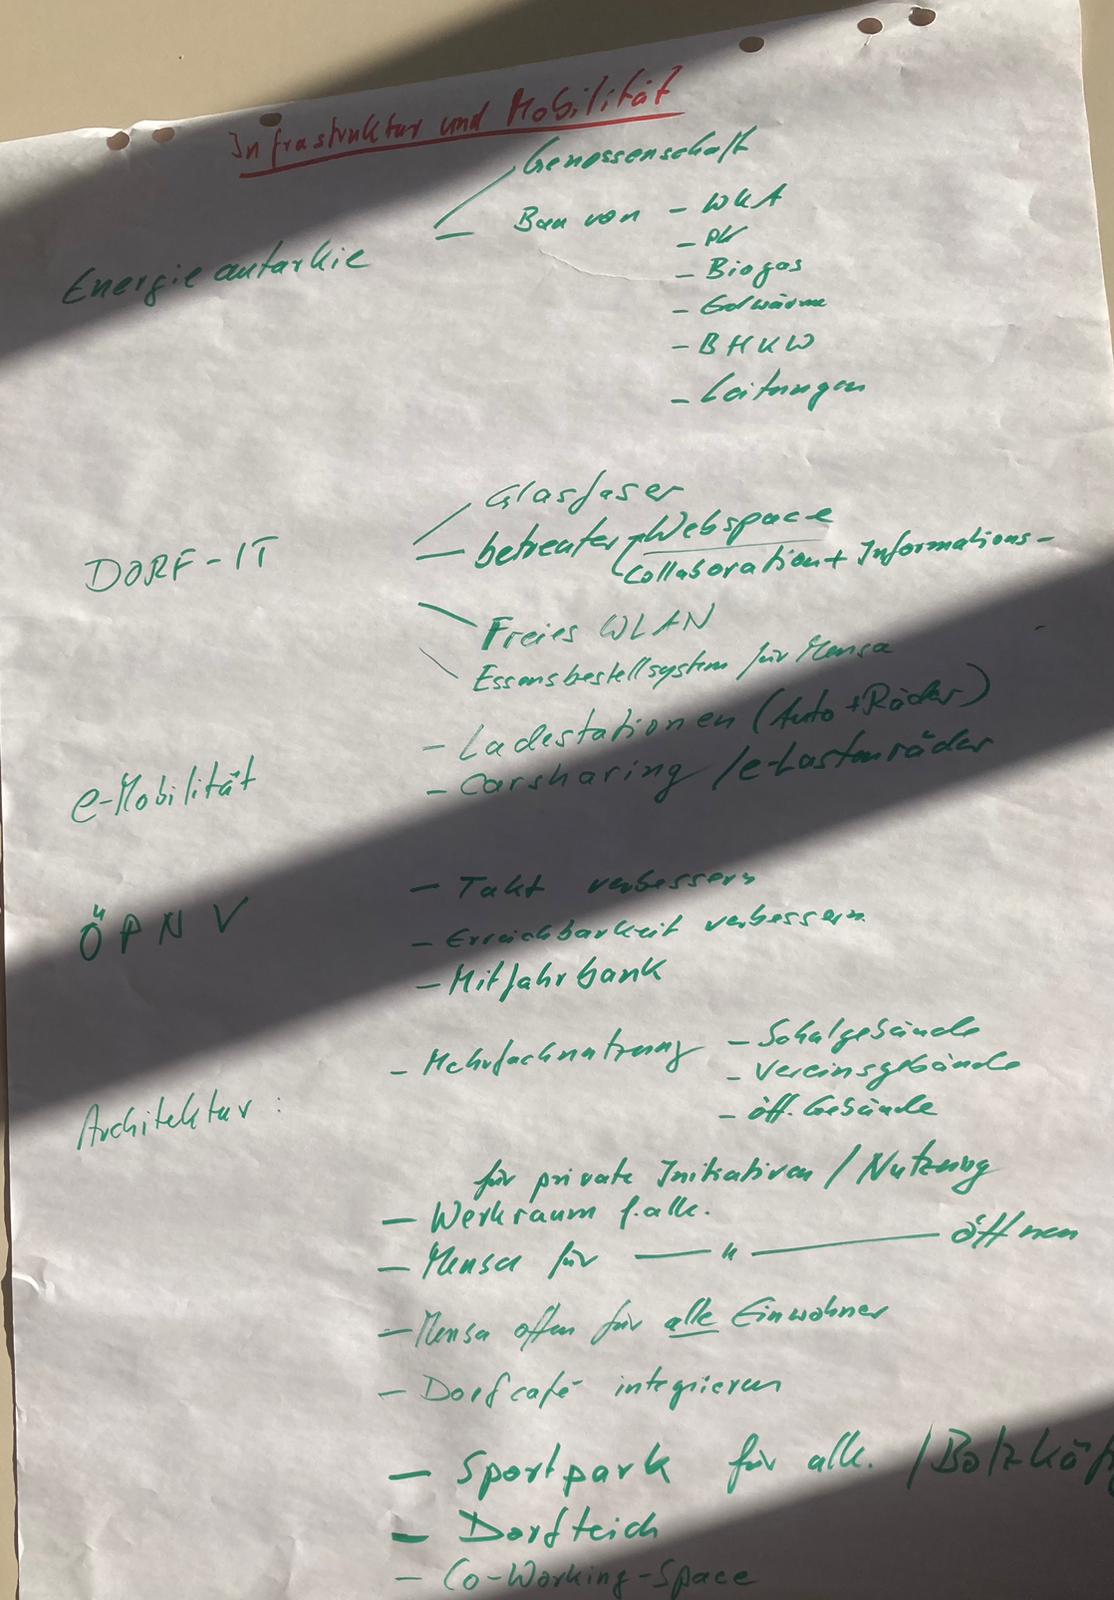 Infrastruktur und Mobilität
Genossenschaft
Energieautarkie
Bau von - WKA
- PV
- Biogas
- Erdwärme
- BHKW
- Leitungen
DORF-IT
Glasfaser
betreuter Webspace
Collaboration + Informations-
Freies WLAN
Essensbestellsystem für Mensa
e-Mobilität
- Ladestationen (Auto + Räder)
- Carsharing / e-Lastenräder
ÖPNV
- Takt verbessern
- Erreichbarkeit verbessern
- Mitfahrbank
Architektur:
- Mehrfachnutzung - Schulgebäude
- Vereinsgebäude
- öff. Gebäude
für private Initiativen / Nutzung
- Werkraum f. alle.
- Mensa für — " — öffnen
- Mensa offen für alle Einwohner
- Dorfcafé integrieren
- Sportpark für alle. /
- Dorfteich
- Co-Working-Space